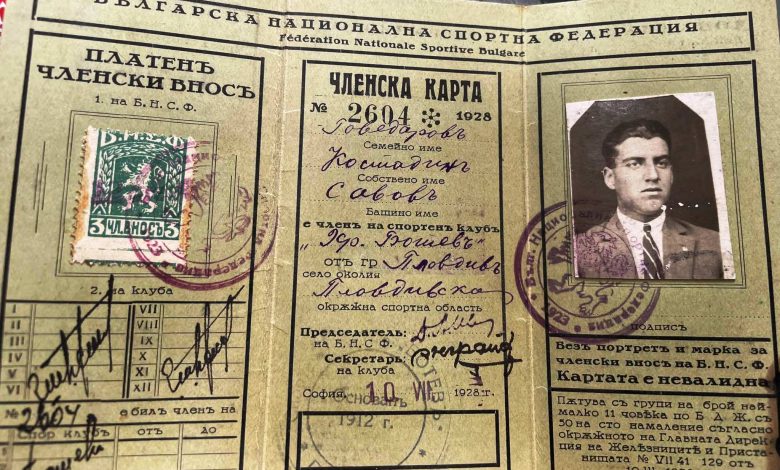 БЪЛГАРСКА НАЦИОНАЛНА СПОРТНА ФЕДЕРАЦИЯ
Fédération Nationale Sportive Bulgare
ПЛАТЕНЪ
ЧЛЕНСКИ ВНОСЪ
1. на Б. Н. С. Ф.
3 ЧЛ. ВНОСЪ 3
2. на клуба
I VII
II VIII
III IX
X
XI
VI XII
№ 2604 е билъ членъ на
Спор клубъ отъ до
ЧЛЕНСКА КАРТА
№ 2604 1928
Говедаровъ
Семейно име
Костадинъ
Собствено име
Савовъ
Бащино име
е членъ на спортенъ клубъ
"Хр. Ботевъ"
отъ гр Пловдив
село околия
Пловдивска
окръжна спортна область
Председатель:
на Б. Н. С. Ф.
Секретарь:
на клуба
София, 10 VII 1928 г.
Основанъ
1912 г.
подписъ
Безъ портретъ и марка за
членски вносъ на Б. Н. С. Ф.
Картата е невалидна
Пѫтува съ групи на брой най-
малко 11 човѣка по Б. Д. Ж. съ
50 на сто намаление съгласно
окрѫжното на Главната Дирек
ция на Желѣзниците и Приста
нищата № VII 41 129 отъ